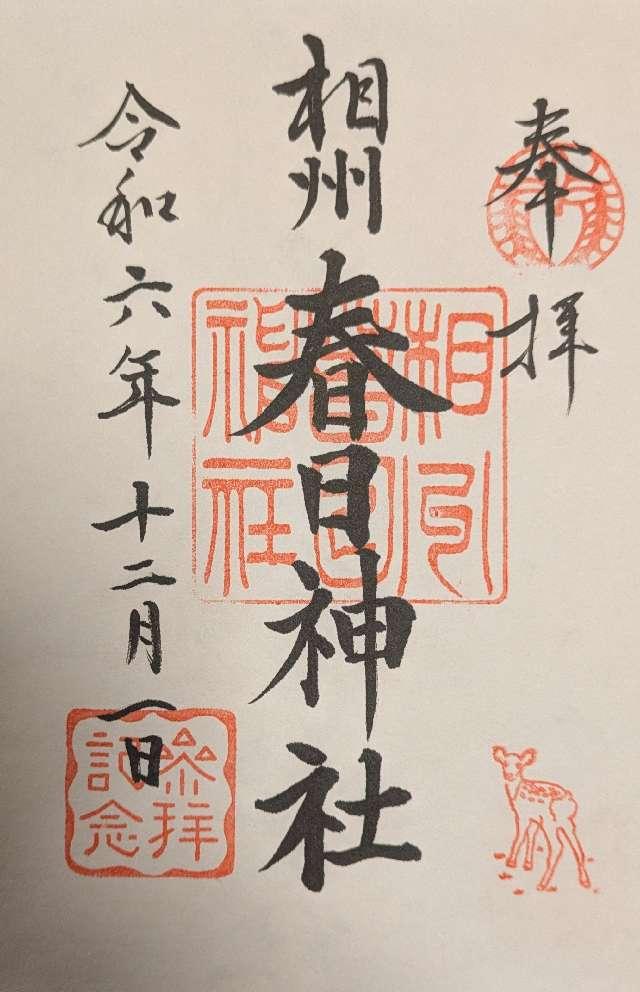 奉拝
相州
春日神社
相州
春日
神社
令和六年十二月一日
参拝
記念